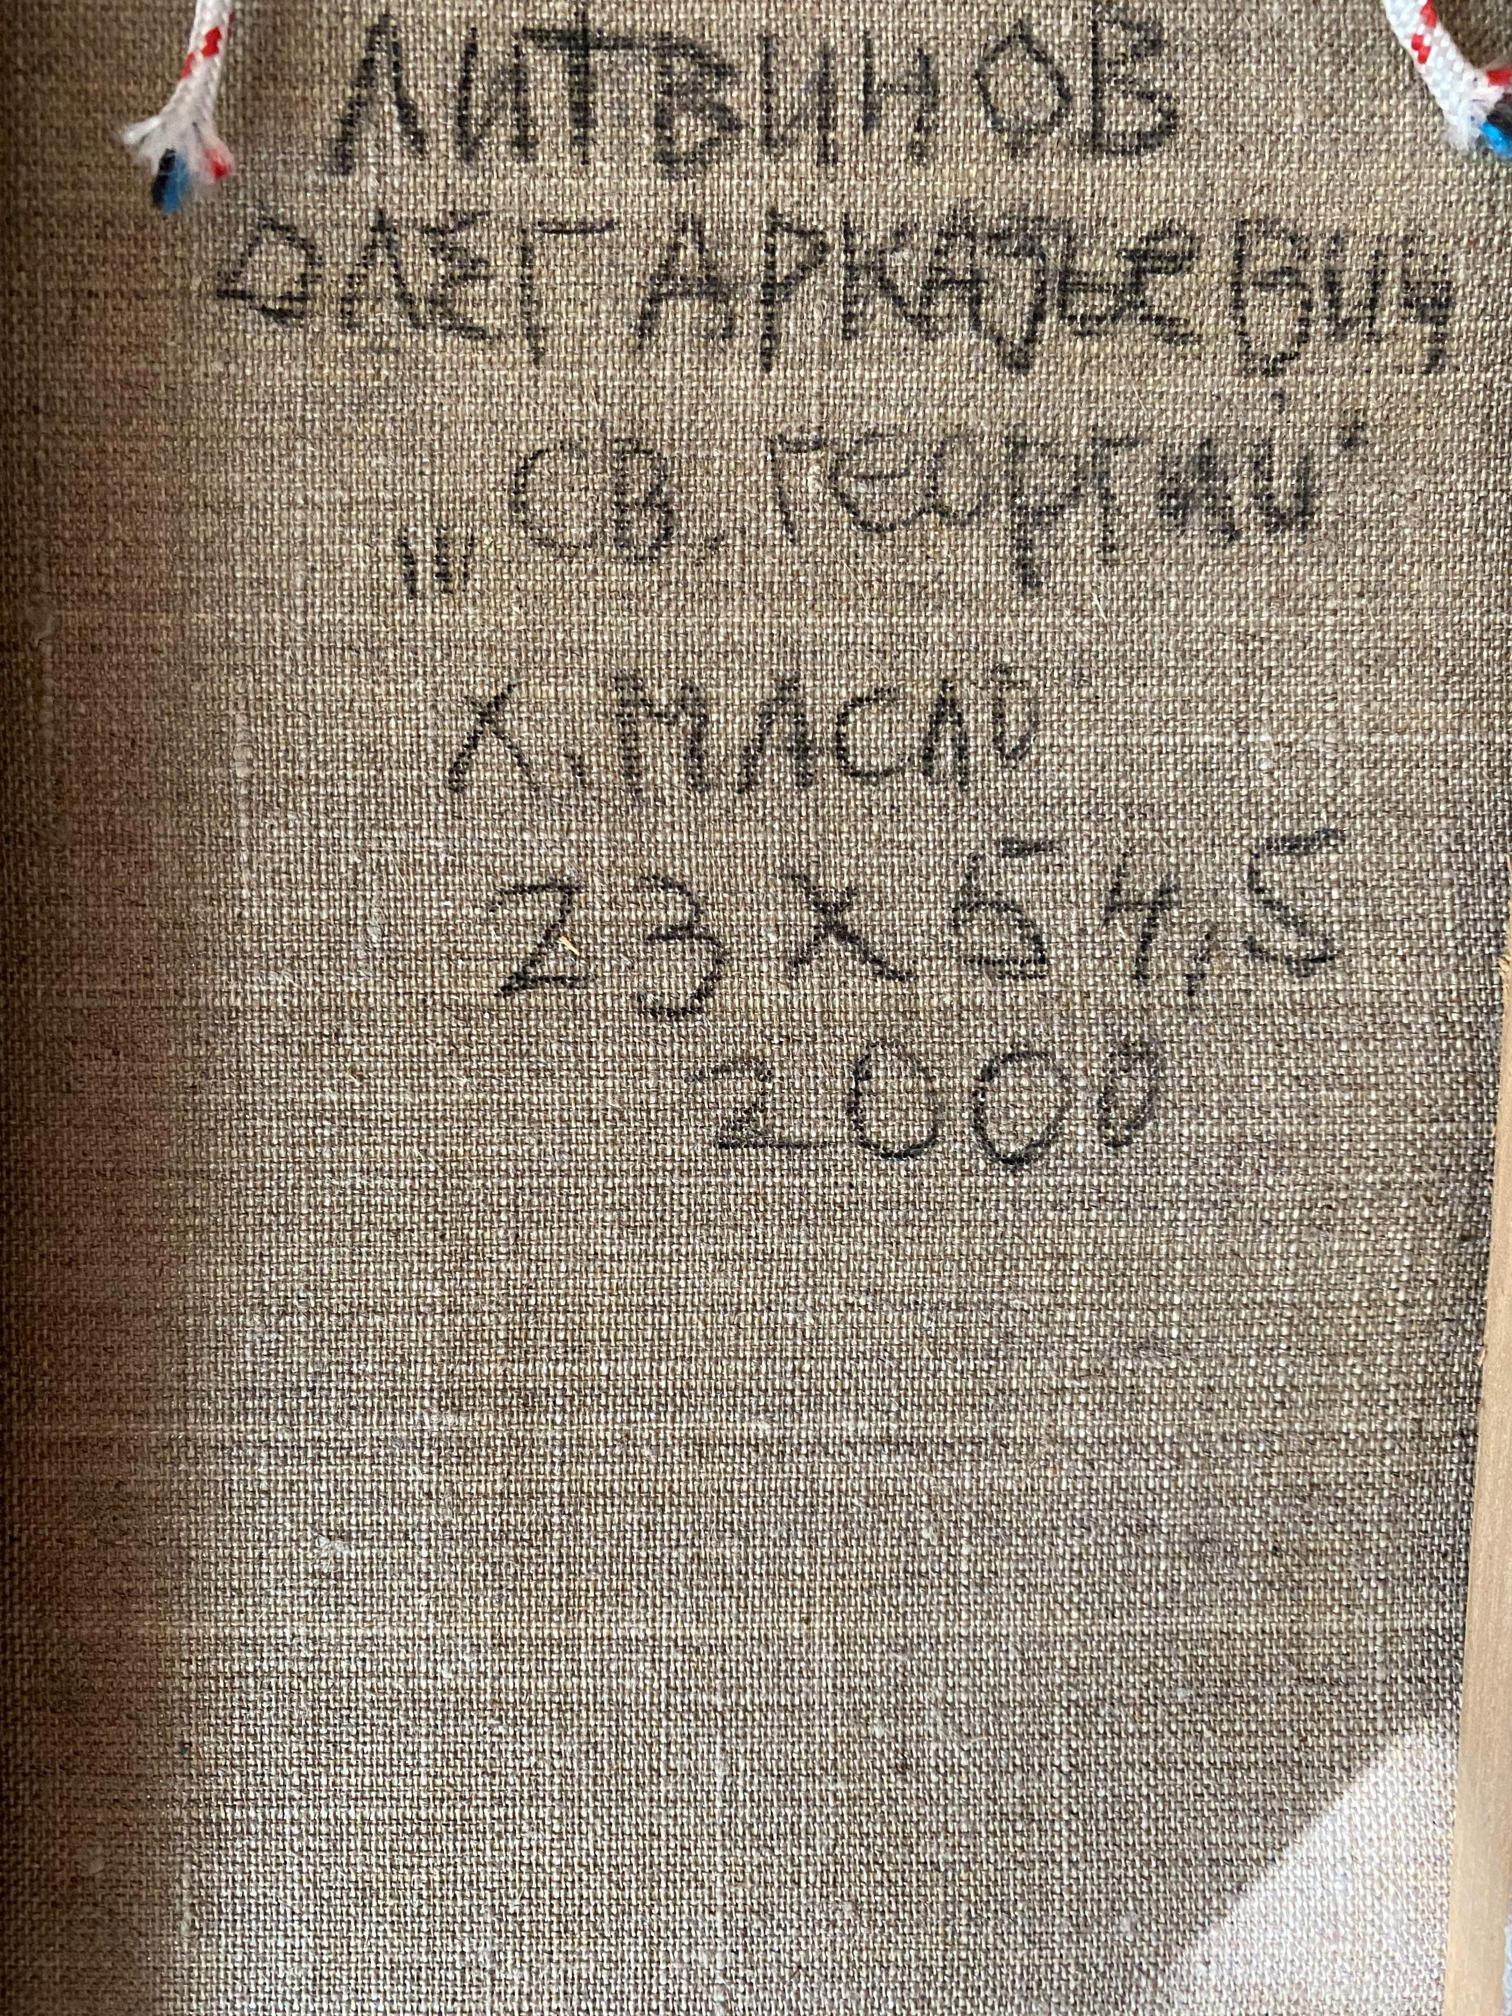 ЛИТВИНОВ
ОЛЕГ АРКАДЬЕВИЧ
„СВ. ГЕОРГИЙ“
Х. МАСЛО
23 х 54,5
2000